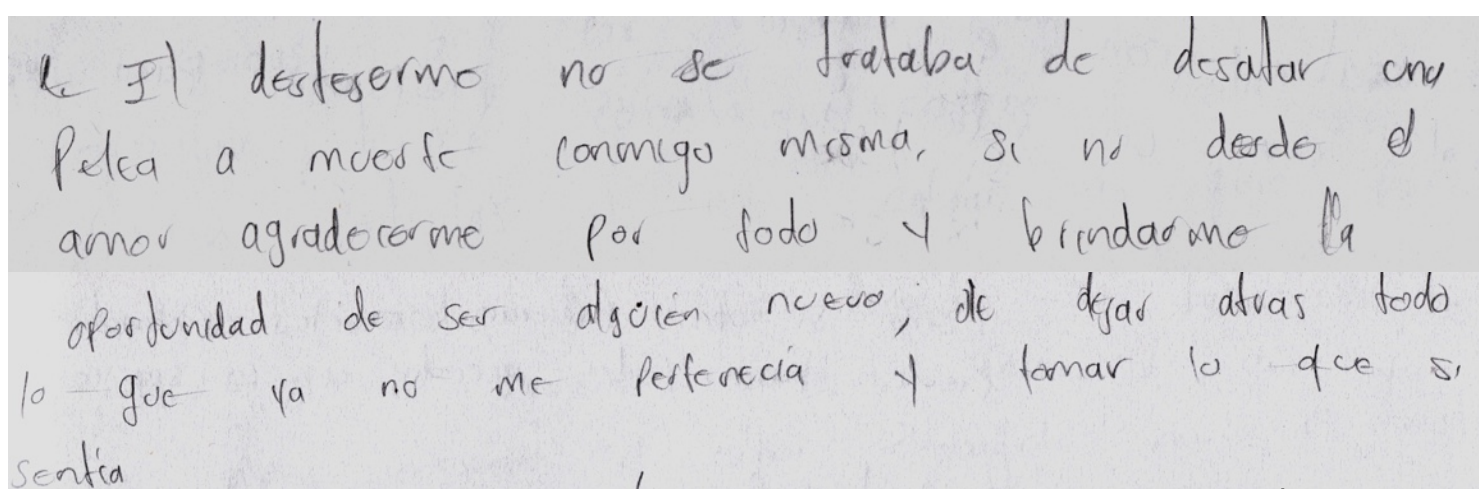 El destejerme no se trataba de desatar una
Pelea a muerte conmigo misma, si no desde el
amor agradecerme por todo y brindarme la
oportunidad de ser algüien nuevo, de dejar atras todo
lo que ya no me pertenecía y tomar lo que si
sentía